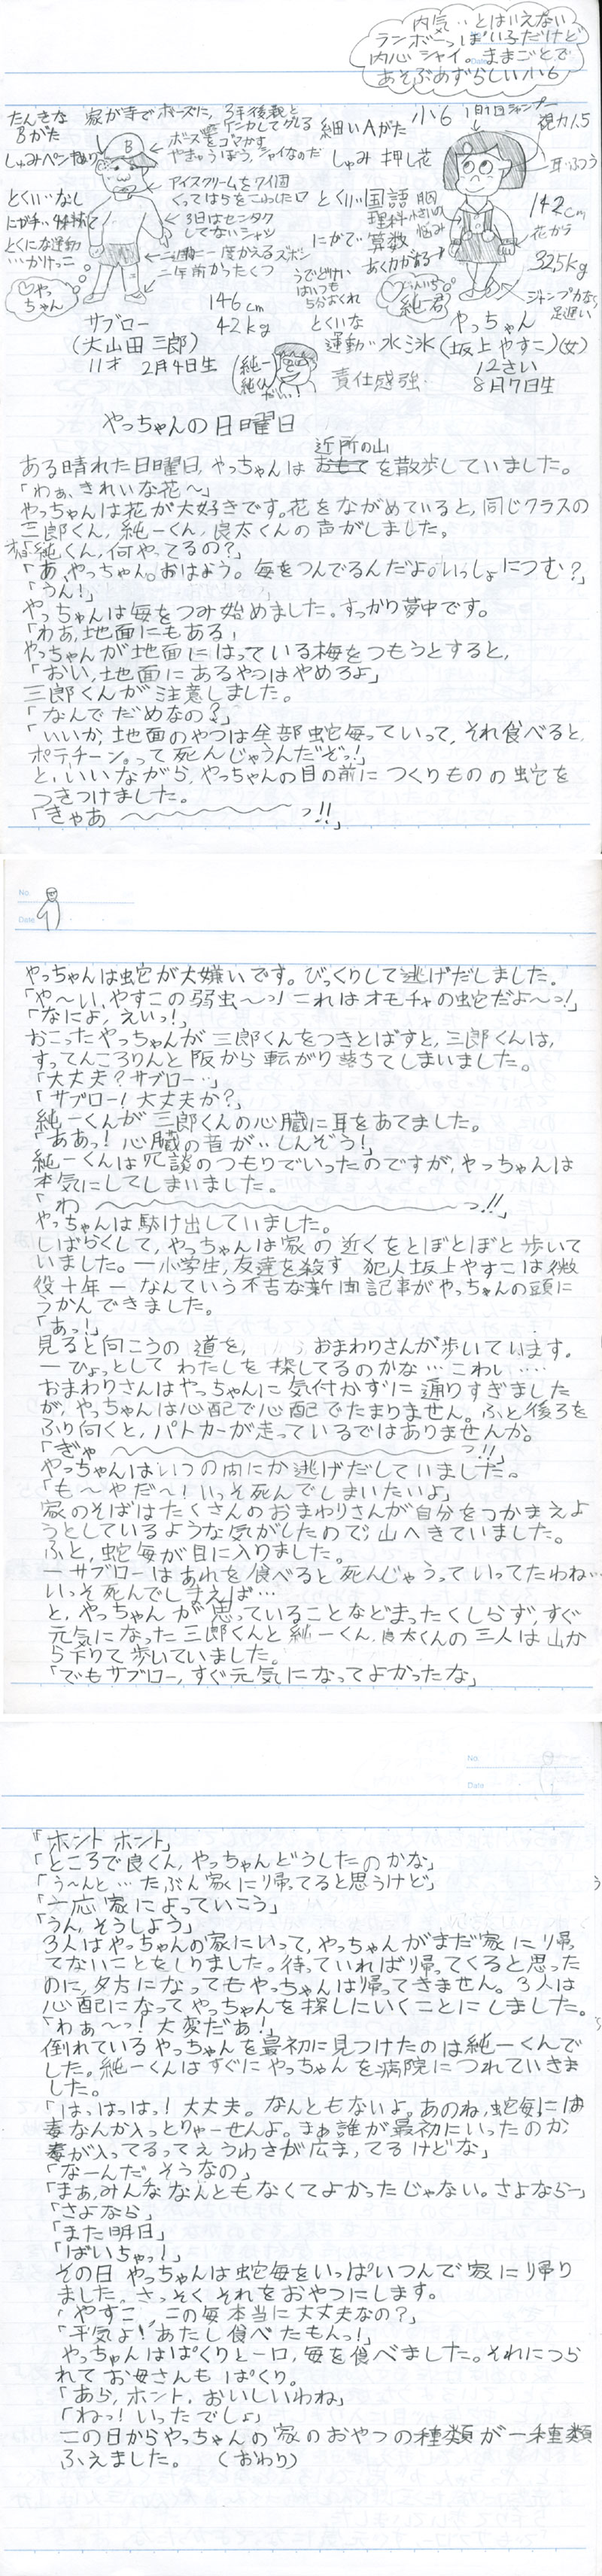 内気‥とはいえない
ランボーっぽい子だけど
内心シャイ。ままごとで
あそぶめずらしい小6
たんきな
Bがた
しゅみペン
家が寺でボーズに,3年後親と
ケンカしてグレる
ボーズをゴマかす
やきゅうぼう,シャイなのだ
アイスクリームを7イ固
くってはらをこわした口
3日はセンタク
してないシャツ
二週に一度かえるズボン
二年前かったくつ
とくいなし
とくにな運動
…かけっこ
♡やっ
ちゃん
サブロー
(大山田三郎)
11才 2月4日生
146cm
42kg
細いAがた
しゅみ 押し花
とくい国語
理科
にがて 算数
あく力がなる
うでどけい
はいつも
5分おくれ
とくいな
運動 水泳
責任感強
小6
視力1.5
耳ふつう
142cm
花から
32.5kg
ジャンプ力なく
足遅い
純君
やっちゃん
(坂上やすこ)(女)
12さい
8月7日生
やっちゃんの日曜日
近所の山
ある晴れた日曜日,やっちゃんは おもてを散歩していました。
「わぁ,きれいな花〜」
やっちゃんは花が大好きです。花をながめていると,同じクラスの
三郎くん,純一くん,良太くんの声がしました。
「純くん,何やってるの?」
「あ,やっちゃん。おはよう。苺をつんでるんだよ。いっしょにつむ?」
「うん!」
やっちゃんは苺をつみ始めました。すっかり夢中です。
「わぁ,地面にもある」
やっちゃんが地面にはっている梅をつもうとすると,
「おい,地面にあるやつはやめろよ」
三郎くんが注意しました。
「なんでだめなの?」
「いいか,地面のやつは全部蛇苺っていって,それ食べると,
ポテチーン。って死んじゃうんだぞっ!」
と,いいながら,やっちゃんの目の前につくりものの蛇を
つきつけました。
「きゃあ〜〜〜っ!!」
No.
Date
やっちゃんは蛇が大嫌いです。びっくりして逃げだしました。
「や〜い,やすこの弱虫〜っ!これはオモチャの蛇だよ〜っ!」
「なによ,えいっ!」
おこったやっちゃんが三郎くんをつきとばすと,三郎くんは,
すってんころりんと阪から転がり落ちてしまいました。
「大丈夫?サブロー‥」
「サブロー!大丈夫か?」
純一くんが三郎くんの心臓に耳をあてました。
「ああっ!心臓の音が‥しんぞう!」
純一くんは冗談のつもりでいったのですが,やっちゃんは
本気にしてしまいました。
「わ〜〜〜っ!!」
やっちゃんは駆け出していました。
しばらくして,やっちゃんは家の近くをとぼとぼと歩いて
いました。―小学生,友達を殺す 犯人坂上やすこは懲
役十年―なんていう不吉な新聞記事がやっちゃんの頭に
うかんできました。
「あっ!」
見ると向こうの道を, おまわりさんが歩いています。
―ひょっとしてわたしを探してるのかな…こわい……
おまわりさんはやっちゃんに気付かずに通りすぎました
が,やっちゃんは心配で心配でたまりません。ふと後ろを
ふり向くと,パトカーが走っているではありませんか。
「ぎゃ〜〜〜っ!!」
やっちゃんはいつの間にか逃げだしていました。
「も〜やだ〜!いっそ死んでしまいたいよ」
家のそばはたくさんのおまわりさんが自分をつかまえよ
うとしているような気がしたので,山へきていました。
ふと,蛇苺が目に入りました。
―サブローはあれを食べると死んじゃうっていってたわね…
いっそ死んでしまえば…
と,やっちゃんが思っていることなどまったくしらず,すぐ
元気になった三郎くんと純一くん,良太くんの三人は山か
ら下りて歩いていました。
「でもサブロー,すぐ元気になってよかったな」
No.
Date
「ホントホント」
「ところで良くん,やっちゃんどうしたのかな」
「う〜んと…たぶん家に帰ってると思うけど」
「一応家によっていこう」
「うん,そうしよう」
3人はやっちゃんの家にいって,やっちゃんがまだ家に帰っ
てないことをしりました。待っていれば帰ってくると思った
のに,夕方になってもやっちゃんは帰ってきません。3人は
心配になってやっちゃんを探しにいくことにしました。
「わぁ〜っ!大変だぁ!」
倒れているやっちゃんを最初に見つけたのは純一くんで
した。純一くんはすぐにやっちゃんを病院につれていきま
した。
「はっはっはっ!大丈夫。なんともないよ。あのね,蛇苺には
毒なんか入っとりゃーせんよ。まぁ誰が最初にいったのか,
毒が入ってるってえうわさが広まってるけどな」
「なーんだ,そうなの」
「まあ,みんななんともなくてよかったじゃない。さよならー」
「さよなら」
「また明日」
「ばいちゃっ!」
その日やっちゃんは蛇苺をいっぱいつんで家に帰り
ました。さっそくそれをおやつにします。
「やすこ,この苺本当に大丈夫なの?」
「平気よ!あたし食べたもんっ!」
やっちゃんはぱくりと一口,苺を食べました。それにつら
れてお母さんもぱくり。
「あら,ホント,おいしいわね」
「ねっ!いったでしょ」
この日からやっちゃんの家のおやつの種類が一種類
ふえました。 (おわり)